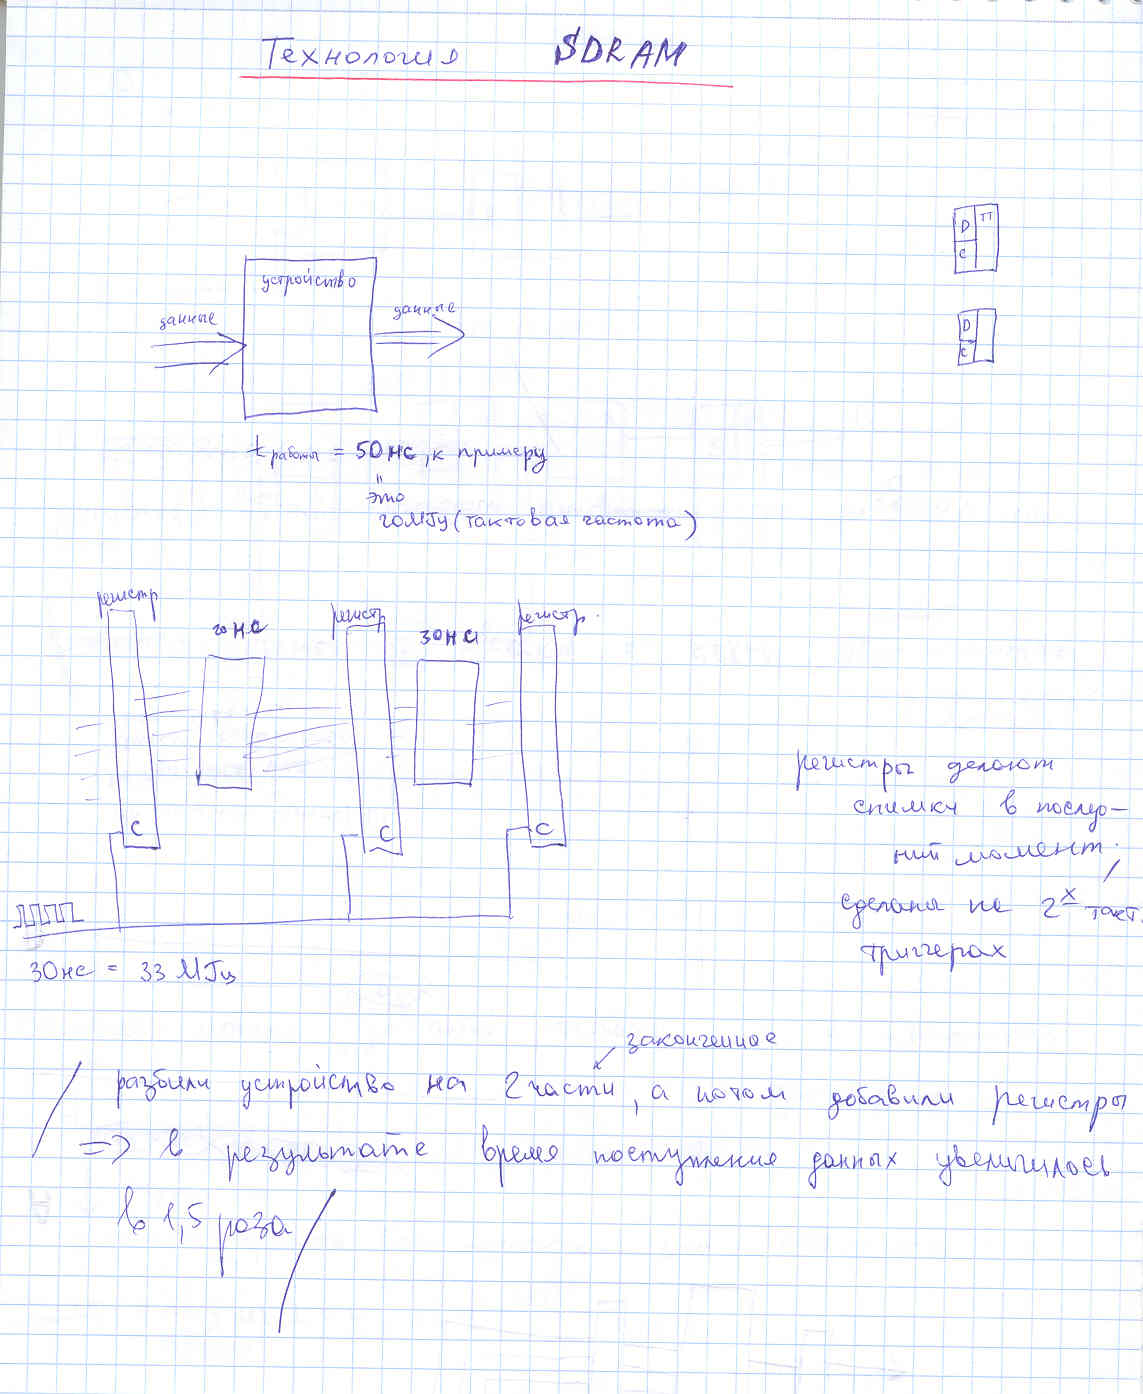 Технология SDRAM
D TT
C
устройство
данные
данные
D
C
t работы = 50нс, к примеру
"
это
20МГц (тактовая частота)
регистр
20 нс
регистр
30 нс
регистр.
регистры делают
снимки в послед-
ний момент.
C
C
C
сделаны на 2х такт.
триггерах
30нс = 33 МГц
законченное
разбили устройство на 2 части, а потом добавили регистры
=> в результате время поступления данных увеличилось
в 1,5 раза